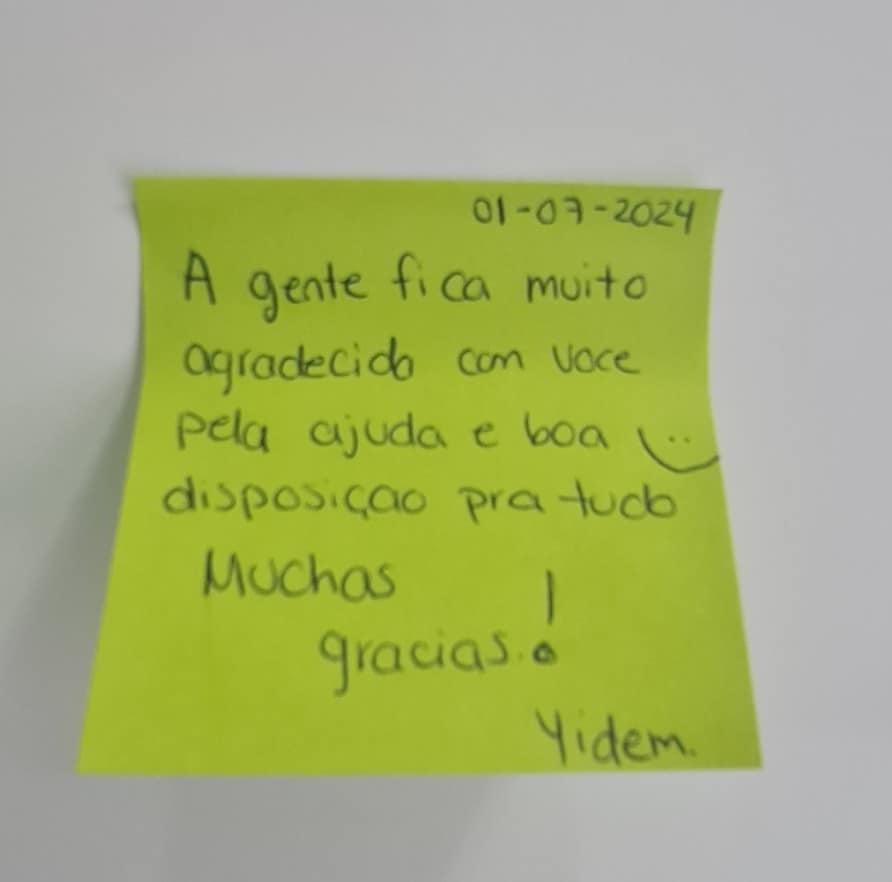 01-07-2024
A gente fica muito
agradecido com voce
pela ajuda e boa
disposiçao pra tudo
Muchas
gracias.!
Yidem.